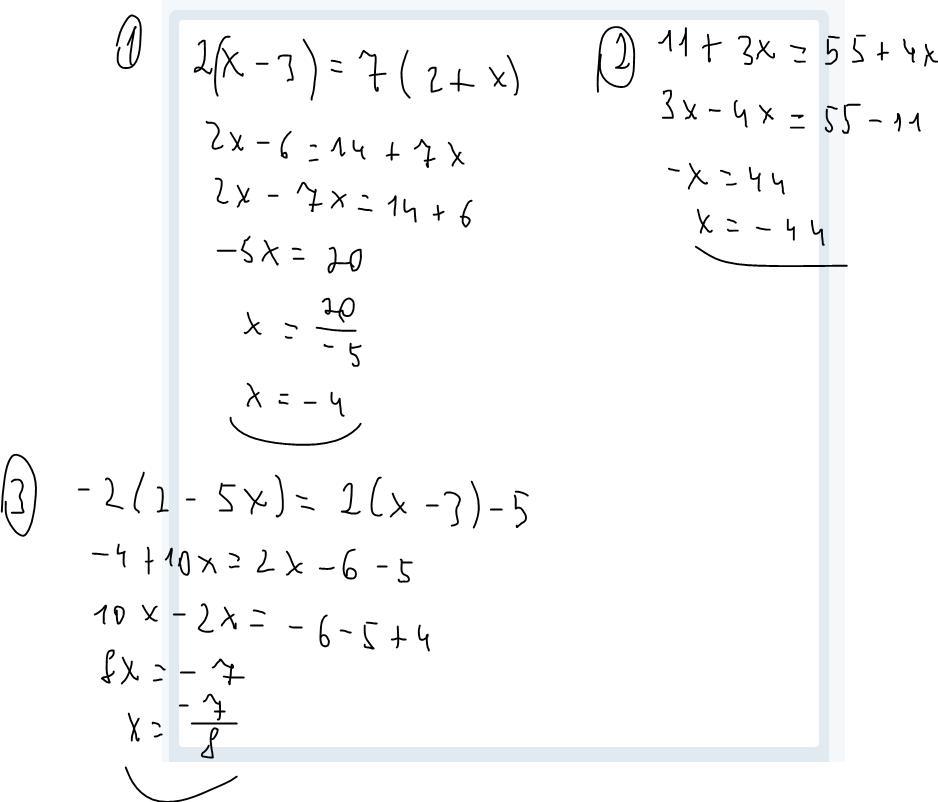 ① 2(x - 3) = 7(2 + x)
2x - 6 = 14 + 7x
2x - 7x = 14 + 6
-5x = 20
x = 20/-5
x = -4
② 11 + 3x = 55 + 4x
3x - 4x = 55 - 11
-x = 44
x = -44
③ -2(2 - 5x) = 2(x - 3) - 5
-4 + 10x = 2x - 6 - 5
10x - 2x = -6 - 5 + 4
8x = -7
x = -7/8